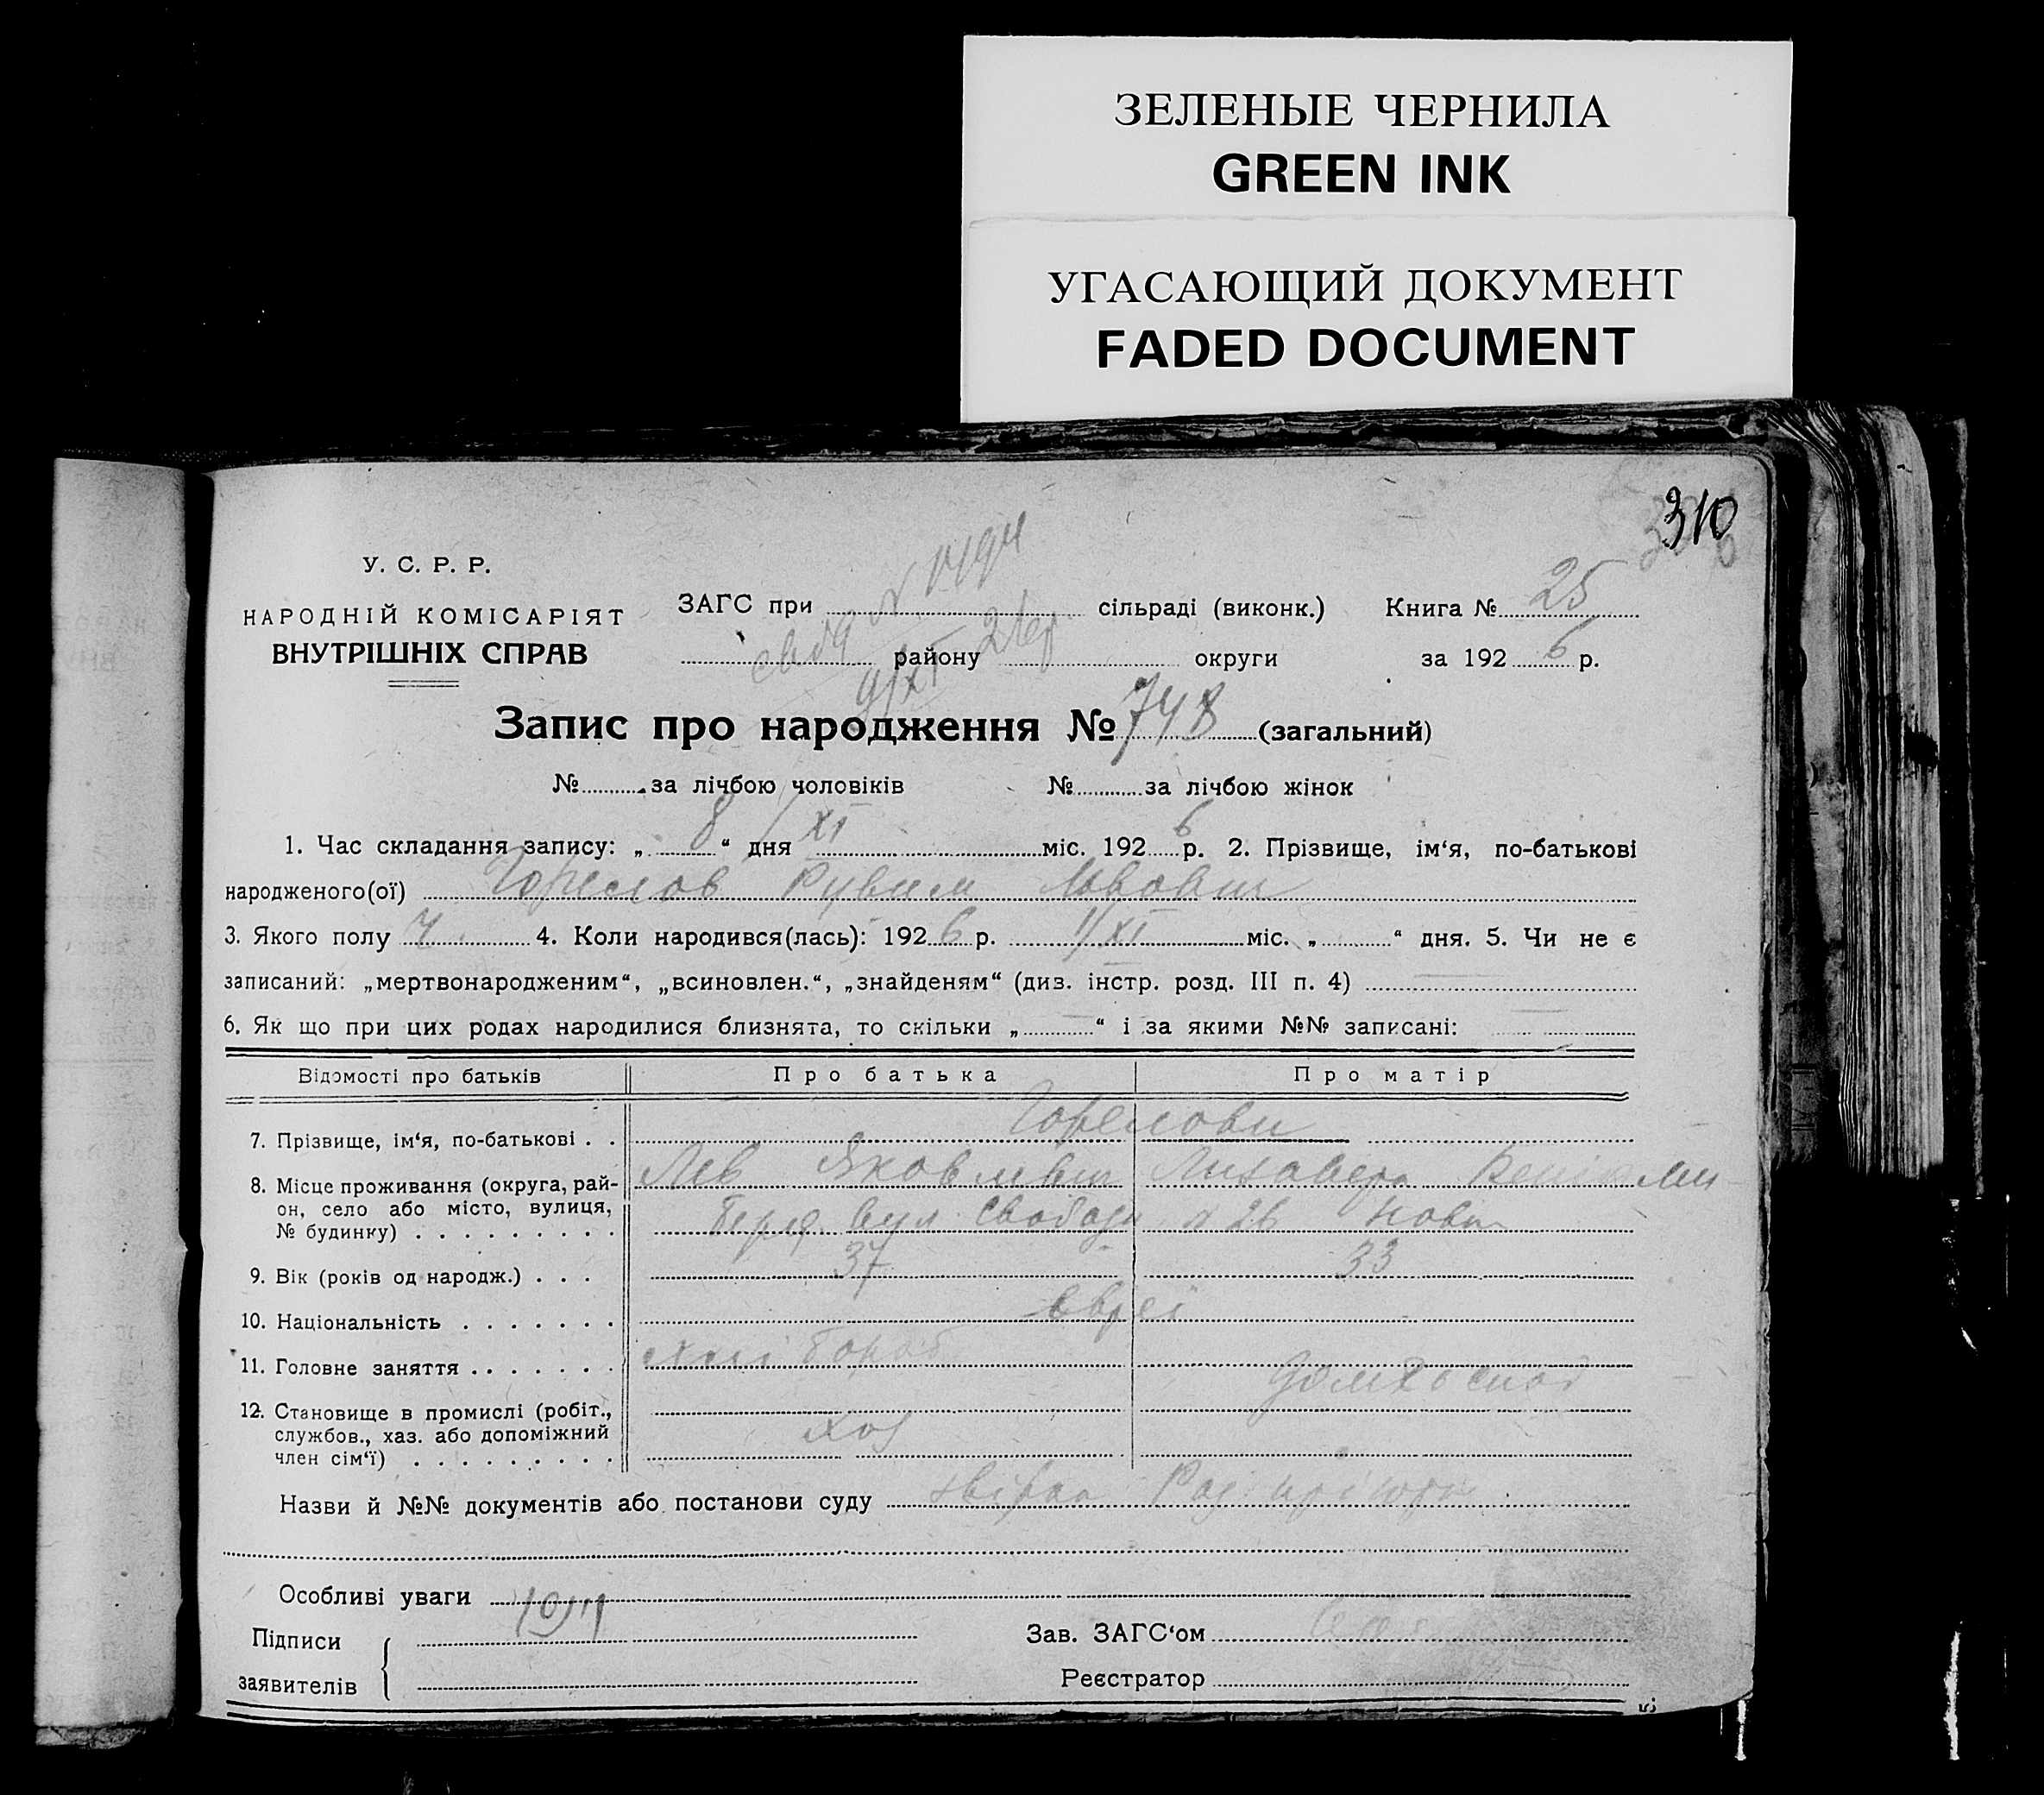 ЗЕЛЕНЫЕ ЧЕРНИЛА
GREEN INK
УГАСАЮЩИЙ ДОКУМЕНТ
FADED DOCUMENT
310
У. С. Р. Р.
НАРОДНІЙ КОМІСАРІЯТ
ВНУТРІШНІХ СПРАВ
ЗАГС при сільраді (виконк.) Книга № 25
району округи за 192 6 р.
9/XI
Запис про народження № 748 (загальний)
№ за лічбою чоловіків № за лічбою жінок
1. Час складання запису: „ 8 “ дня XI міс. 192 6 р. 2. Прізвище, ім‘я, по-батькові
народженого(ої) Горелов Рувим Львович
3. Якого полу Ч. 4. Коли народився(лась): 192 6 р. 1/XI міс. „ “ дня. 5. Чи не є
записаний: „мертвонародженим“, „всиновлен.“, „знайденям“ (див. інстр. розд. III п. 4)
6. Як що при цих родах народилися близнята, то скільки „ “ і за якими №№ записані:
Відомості про батьків Про батька Про матір
Горелови
7. Прізвище, ім‘я, по-батькові . .
Лев Яковлевич Лизавера
8. Місце проживання (округа, рай-
он, село або місто, вулиця,
№ будинку) . . . . . . . . . вул. Свободи № 26
9. Вік (років од народж.) . . . 37 33
10. Національність . . . . . . . євреї
11. Головне заняття . . . . . . . хлібороб
домхоспод
12. Становище в промислі (робіт.,
службов., хаз. або допоміжний
член сім‘ї) . . . . . . . . . хоз
Назви й №№ документів або постанови суду
Особливі уваги
Підписи Зав. ЗАГС‘ом
заявителів Реєстратор